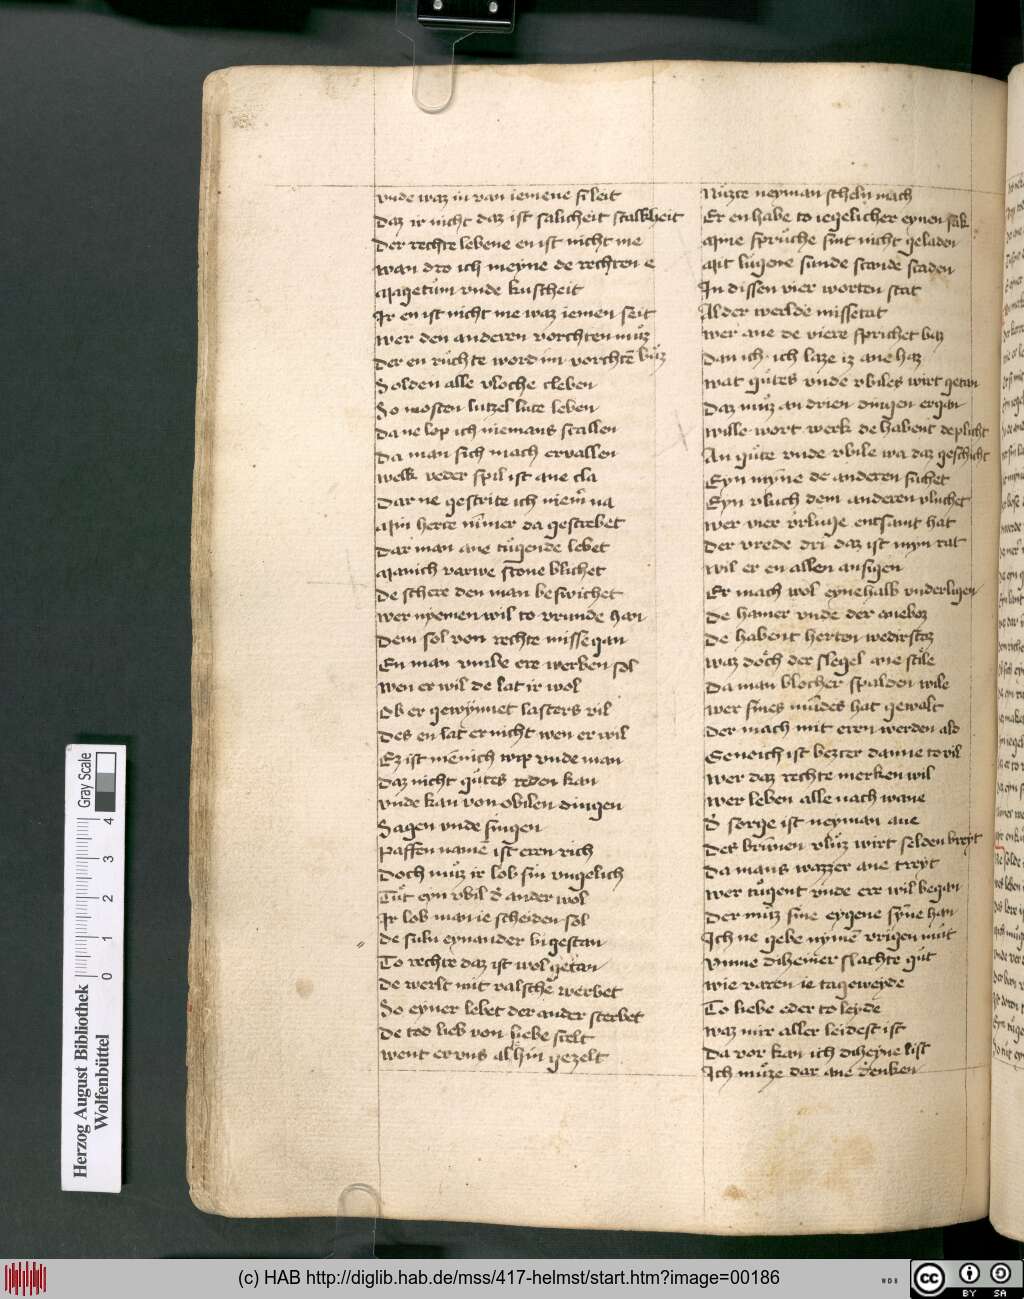 vnde waz in van iemene si leit
Daz ir nicht daz ist salicheit stalkheit
Der rechte lebene en ist nicht me
wan dro ich meyne de rechten e
Magetům vnde kuscheit
Ir en ist nicht me waz iemen seit
wer den anderen vorchten můz
Der en růchte word im vorchtē bůz
Solden alle vloche cleben
So mosten lutzel lute leben
Da ne lop ich niemans stallen
Da man sich mach ervallen
welk veder spil ist ane cla
Dar ne gestrite ich niem̄ na
Min herte nīmer da gestrebet
Dar man ane tůgende lebet
Manich varwe stone blichet
De schere den man beswichet
wer nyemen wil to vrunde han
Dem sol von rechte missegan
En man vmbe ere werben sol
wen er wil de lat ir wol
Ob er gewynnet lasters vil
Des en lat er nicht wen er wil
Ez ist mēnich wip vnde man
Daz nicht gůtes reden kan
vnde kan von obilen dingen
Sagen vnde singen
Paffen namē ist eren rich
Doch můz ir lob sin vngelich
Tůt eyn vbil d' ander wol
Ir lob man ie scheiden sol
De suln eynander bi gestan
To rechte daz ist wol getan
De werlt mit valsche werbet
So eyner lebet der ander sterbet
De tod lieb von liebe stelt
Went er vns al hin gezelt
Nuzte neyman scheln mach
Er en habe to iegelicher eynen sak
Mine sprůche sint nicht geladen
Mit lugene sunde scande scaden
In dissen vier worten stat
Al der werlde missetat
wer ane de viere sprichet baz
Dan ich · ich laze iz ane haz
wat gůtes vnde vbiles wirt getan
Daz můz an drien dingen ergan
wille wort werk de habent de plicht
An gůte vnde vbile wa daz geschicht
Eyn mȳne de anderen suchet
Eyn vluch dem anderen vluchet
wer vier orluge entsamt hat
Der vrede dri daz ist myn rat
wil er en allen ansigen
Er mach wol eynehalb vnderligen
De hamer vnde der aneboz
De habent herten wedirstoz
waz dŏch der slegel ane stile
Da man blocher spalden wile
wer sines mūdes hat gewalt
Der mach mit eren werden ald
Genoich ist bezter danne to vil
Wer daz rechte merken wil
wer leben alle nach wane
d' sorge ist neyman ane
Des brūnen vlůz wirt selden breyt
Da mans wazzer ane treyt
wer tůgent vnde ere wil began
Der můz sine eygene sȳne han
Ich ne gebe nymē vrigen můt
vmme diheiner slachte gůt
wie varen ie tageweyde
To liebe eder to leyde
waz mir aller leidest ist
Da vor kan ich diheyne list
Ich můze dar ane denken
(c) HAB http://diglib.hab.de/mss/417-helmst/start.htm?image=00186
Herzog August Bibliothek
Wolfenbüttel
0 1 2 3 4
Gray Scale
WDB
cc
BY SA